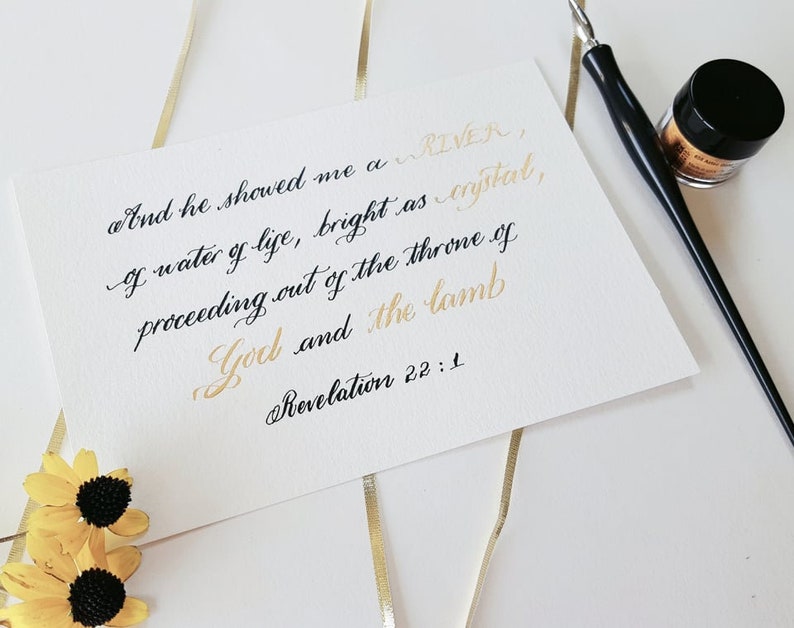 And he showed me a RIVER,
of water of life, bright as crystal,
proceeding out of the throne of
God and the lamb
Revelation 22:1